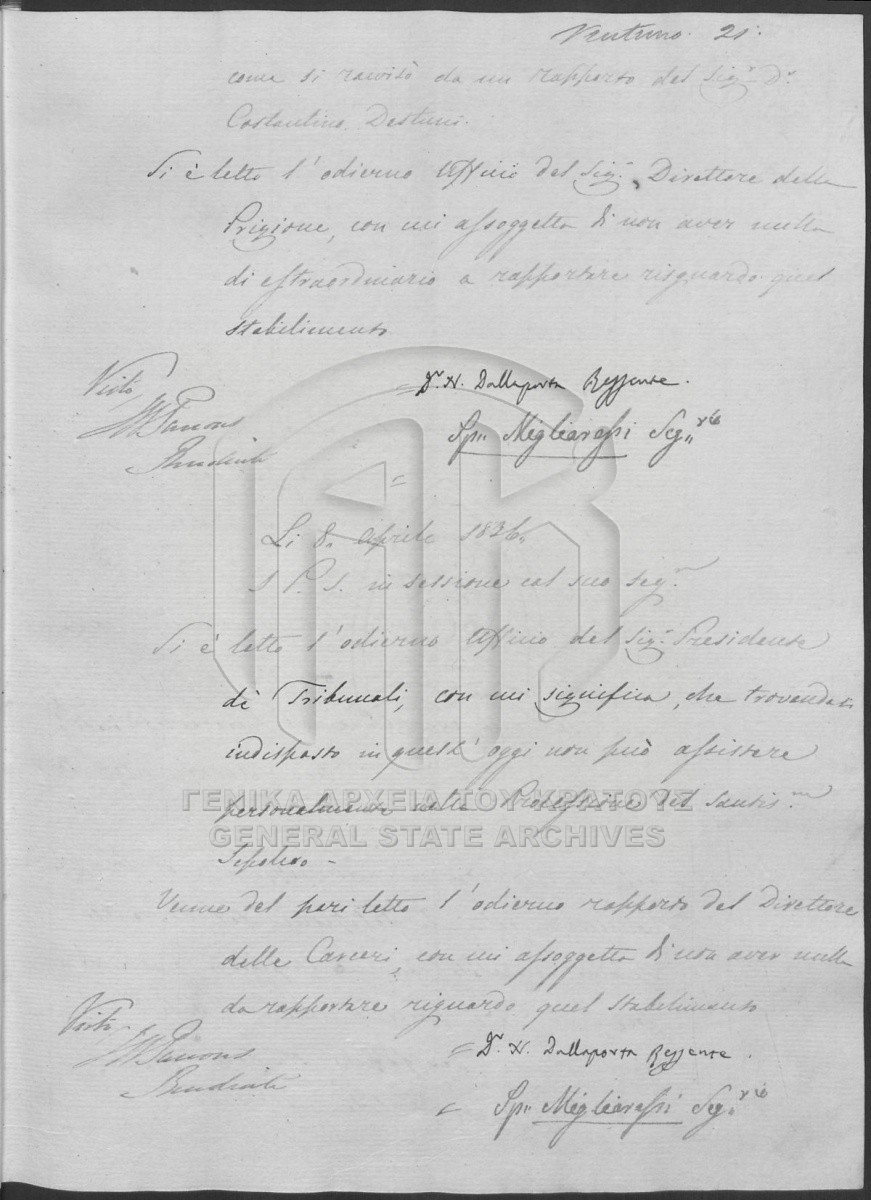 Ventuno. 21.
come si ravisò da un rapporto del Sigr. Dr.
Costantino Destuni.
Si è letto l'odierno Uffizio del Sigr. Direttore delle
Prigione, con cui assoggetta di non aver nulla
di estraordinario a rapportare risguardo quel
stabilimento
Visto
Dr. N. Dallaporta Reggente.
Spn. Migliaressi Segrio
Li 8. Aprile 1836.
S. P. S. in sessione col suo Segr.
Si è letto l'odierno Uffizio del Sigr. Presidente
dè Tribunali, con cui significa, che trovandosi
indisposto in quest'oggi non può assistere
personalmente nella Processione del Santissmo
ΓΕΝΙΚΑ ΑΡΧΕΙΑ ΤΟΥ ΚΡΑΤΟΥΣ
GENERAL STATE ARCHIVES
Sepolcro -
Venne del pari letto l'odierno rapporto del Direttore
delle Carceri, con cui assoggetta di non aver nulla
da rapportare riguardo quel stabilimento
Visto
Dr. N. Dallaporta Reggente.
Spn. Migliaressi Segrio